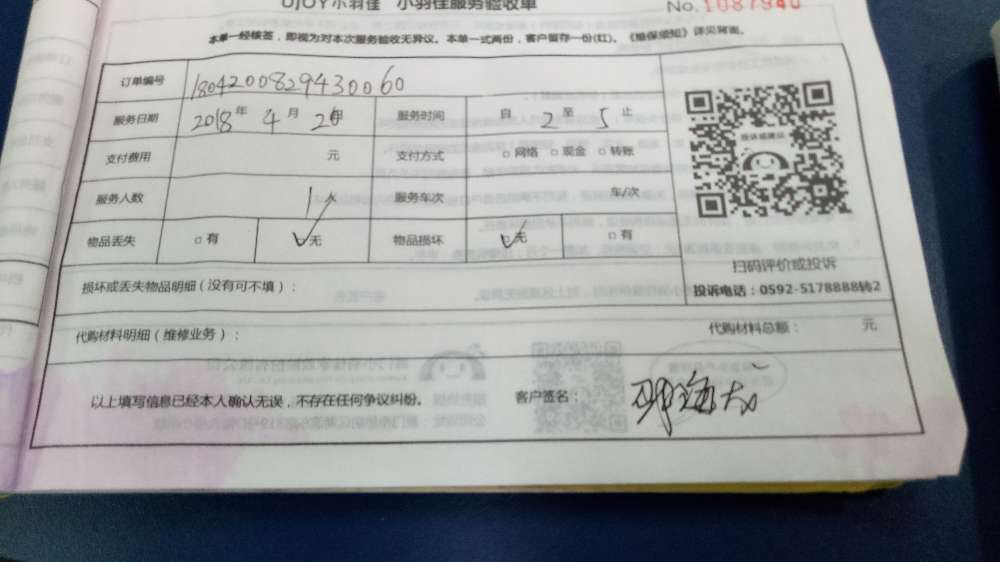 UJOY小羽佳 小羽佳服务验收单 No.1087940
本单一经核签，即视为对本次服务验收无异议。本单一式两份，客户留存一份(红)。《维保须知》详见背面。
订单编号 1804200829430060
服务日期 2018年 4月 20 服务时间 自 2 至 5 止
支付费用 元 支付方式 □网络 □现金 □转账
服务人数 1人 服务车次 车/次
物品丢失 □有 ☑无 物品损坏 ☑无 □有
投诉或建议
扫码评价或投诉
投诉电话：0592-5178888转2
损坏或丢失物品明细（没有可不填）：
代购材料明细（维修业务）： 代购材料总额： 元
以上填写信息已经本人确认无误，不存在任何争议纠纷。 客户签名：